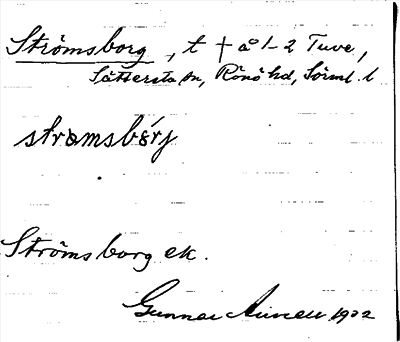 Strömsborg, t † å 1-2 Tuve,
Sättersta sn, Rönö hd, Sörml. l
strömsbórj
Strömsborg ek.
Gunnar 1932